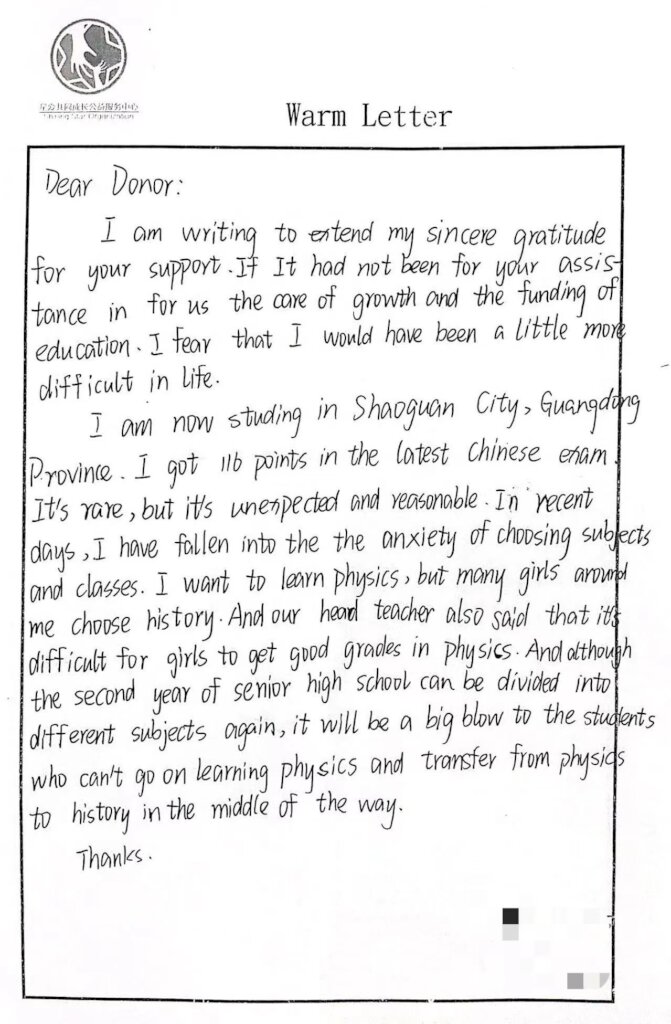 星公共同成长公益服务中心
Shining Star Organization
Warm Letter
Dear Donor:
I am writing to extend my sincere gratitude
for your support. If It had not been for your assis-
tance in for us the care of growth and the funding of
education. I fear that I would have been a little more
difficult in life.
I am now studing in Shaoguan City, Guangdong
Province. I got 116 points in the latest Chinese exam.
It's rare, but it's unexpected and reasonable. In recent
days, I have fallen into the the anxiety of choosing subjects
and classes. I want to learn physics, but many girls around
me choose history. And our head teacher also said that it's
difficult for girls to get good grades in physics. And although
the second year of senior high school can be divided into
different subjects again, it will be a big blow to the students
who can't go on learning physics and transfer from physics
to history in the middle of the way.
Thanks.